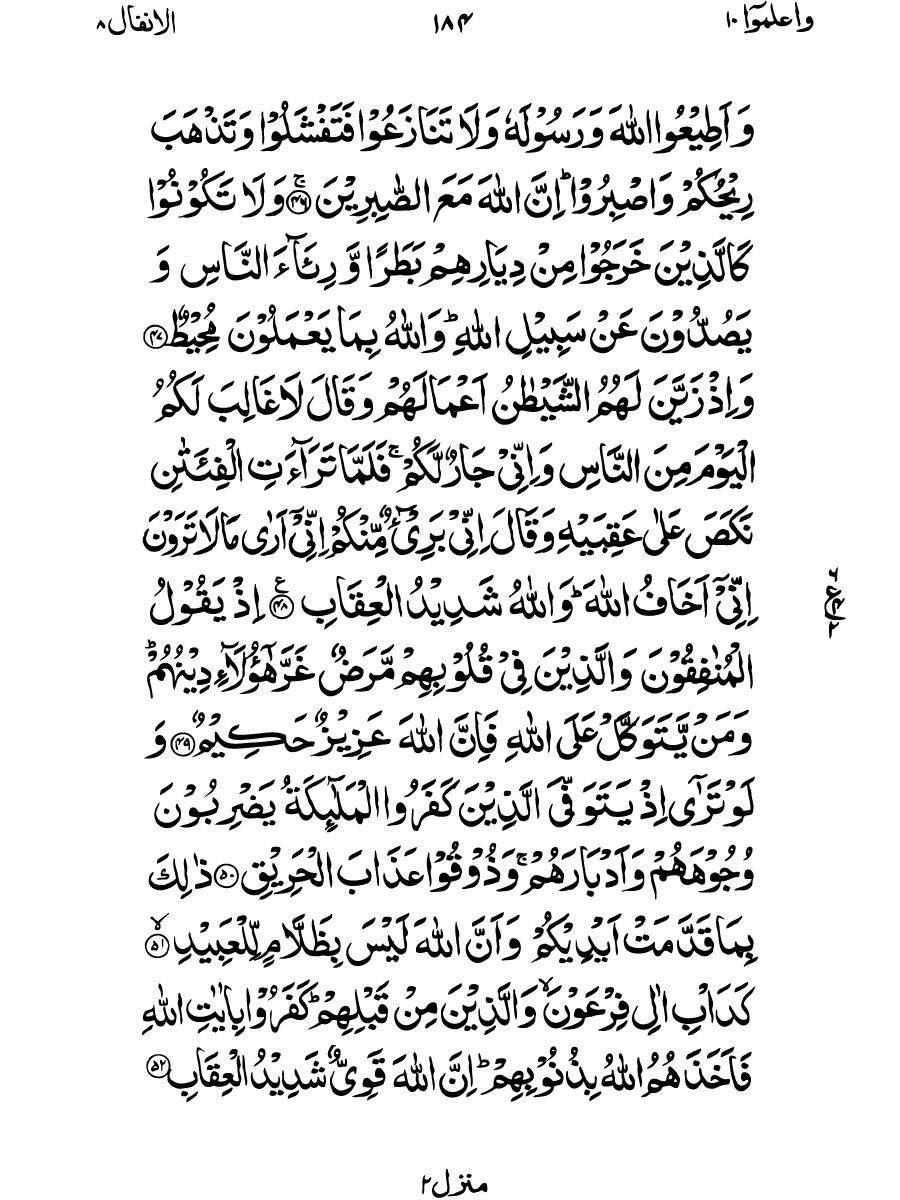 واعلموٓا ١٠ ١٨٤ الانفال ٨
وَ اَطِيْعُوا اللّٰهَ وَ رَسُوْلَهٗ وَ لَا تَنَازَعُوْا فَتَفْشَلُوْا وَ تَذْهَبَ
رِيْحُكُمْ وَ اصْبِرُوْا ؕ اِنَّ اللّٰهَ مَعَ الصّٰبِرِيْنَ ۚ۝۴۶ وَ لَا تَكُوْنُوْا
كَالَّذِيْنَ خَرَجُوْا مِنْ دِيَارِهِمْ بَطَرًا وَّ رِئَآءَ النَّاسِ وَ
يَصُدُّوْنَ عَنْ سَبِيْلِ اللّٰهِ ؕ وَ اللّٰهُ بِمَا يَعْمَلُوْنَ مُحِيْطٌ ۝۴۷
وَ اِذْ زَيَّنَ لَهُمُ الشَّيْطٰنُ اَعْمَالَهُمْ وَ قَالَ لَا غَالِبَ لَكُمُ
الْيَوْمَ مِنَ النَّاسِ وَ اِنِّيْ جَارٌ لَّكُمْ ۚ فَلَمَّا تَرَآءَتِ الْفِئَتٰنِ
نَكَصَ عَلٰى عَقِبَيْهِ وَ قَالَ اِنِّيْ بَرِيْٓءٌ مِّنْكُمْ اِنِّيْۤ اَرٰى مَا لَا تَرَوْنَ
اِنِّيْۤ اَخَافُ اللّٰهَ ؕ وَ اللّٰهُ شَدِيْدُ الْعِقَابِ ۝۴۸ اِذْ يَقُوْلُ
ع ٦ ۴ ٢
الْمُنٰفِقُوْنَ وَ الَّذِيْنَ فِيْ قُلُوْبِهِمْ مَّرَضٌ غَرَّ هٰۤؤُلَآءِ دِيْنُهُمْ ؕ
وَ مَنْ يَّتَوَكَّلْ عَلَى اللّٰهِ فَاِنَّ اللّٰهَ عَزِيْزٌ حَكِيْمٌ ۝۴۹ وَ
لَوْ تَرٰۤى اِذْ يَتَوَفَّى الَّذِيْنَ كَفَرُوا الْمَلٰٓىِٕكَةُ يَضْرِبُوْنَ
وُجُوْهَهُمْ وَ اَدْبَارَهُمْ ۚ وَ ذُوْقُوْا عَذَابَ الْحَرِيْقِ ۝۵۰ ذٰلِكَ
بِمَا قَدَّمَتْ اَيْدِيْكُمْ وَ اَنَّ اللّٰهَ لَيْسَ بِظَلَّامٍ لِّلْعَبِيْدِ ۙ۝۵۱
كَدَاْبِ اٰلِ فِرْعَوْنَ ۙ وَ الَّذِيْنَ مِنْ قَبْلِهِمْ ؕ كَفَرُوْا بِاٰيٰتِ اللّٰهِ
فَاَخَذَهُمُ اللّٰهُ بِذُنُوْبِهِمْ ؕ اِنَّ اللّٰهَ قَوِيٌّ شَدِيْدُ الْعِقَابِ ۝۵۲
منزل ٢